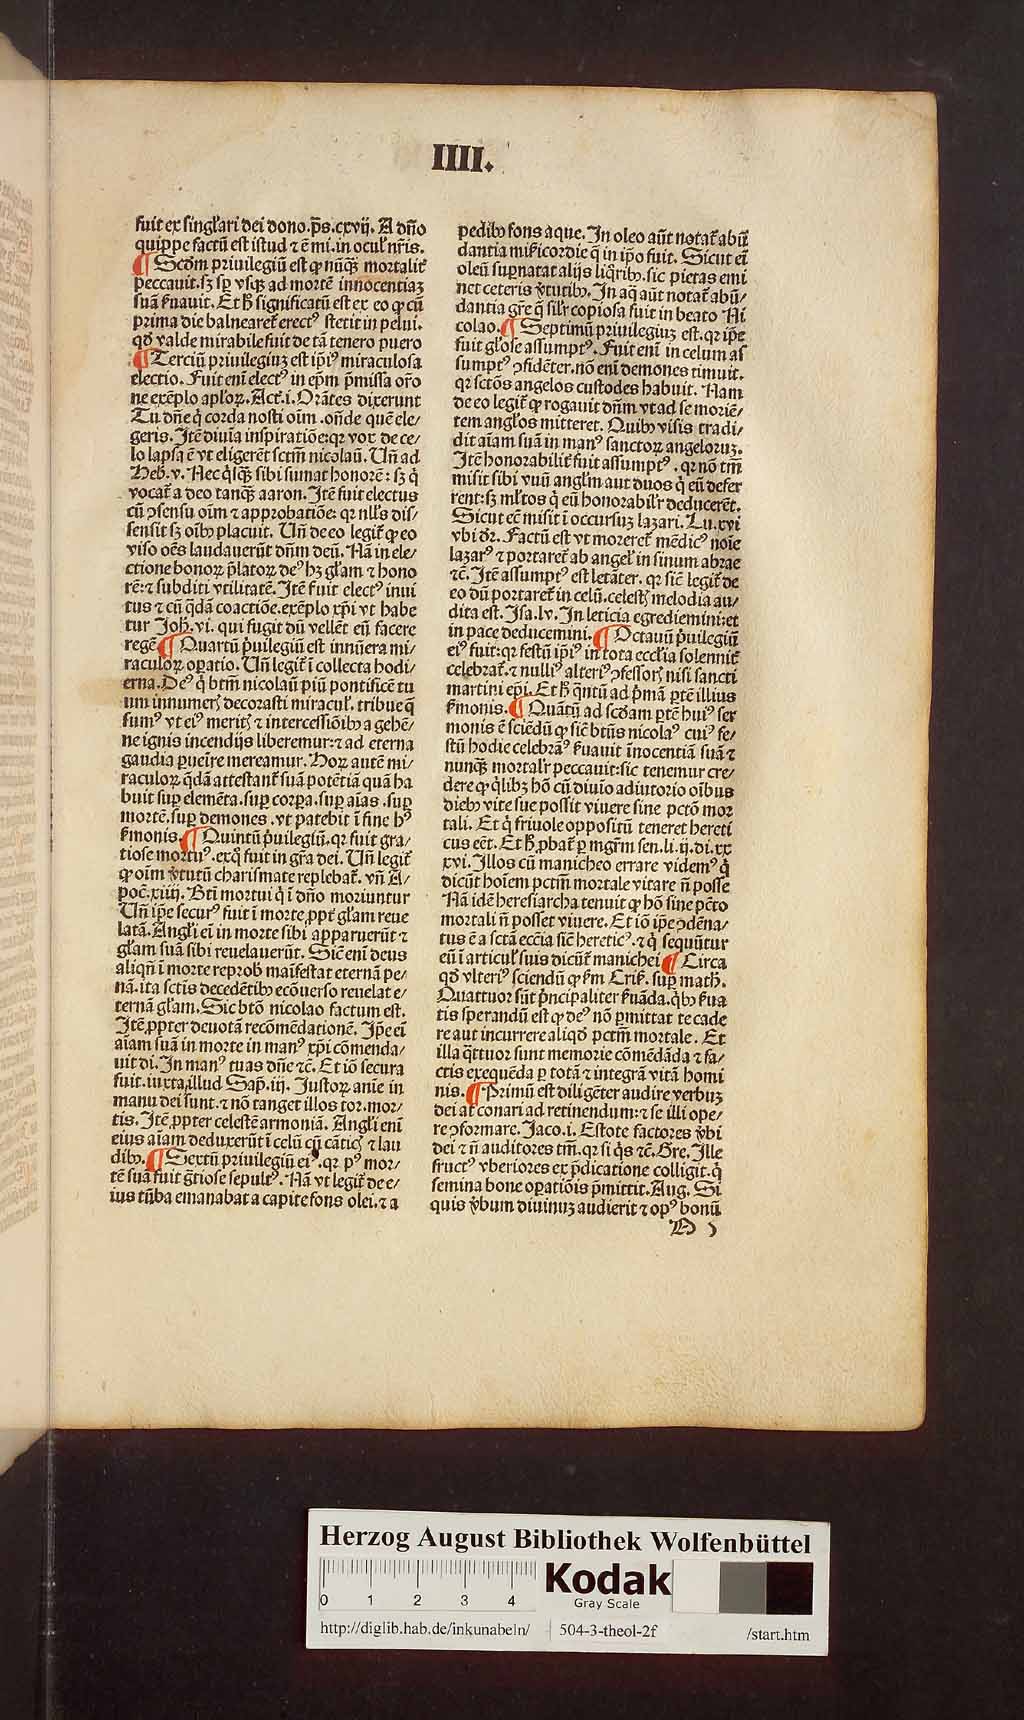 IIII.
fuit ex singl'ari dei dono. p̄s. cxvij. A dn̄o
quippe factū est istud ⁊ ē mi. in ocul' nr̄is.
¶ Scd̄m priuilegiū est ꝙ nūqꝫ mortalit̕
peccauit. sꝫ sp̱ vsqꝫ ad mortē innocentiaꝫ
suā ẜuauit. Et h̓ significatū est ex eo ꝙ cū
prima die balnearet̕ erectꝰ stetit in pelui.
qd̓ valde mirabile fuit de tā tenero puero
¶ Terciū priuilegiuꝫ est ip̄iꝰ miraculosa
electio. Fuit enī electꝰ in ep̄m p̄missa or̄o
ne exēplo ap̄loꝝ. Act̕. i. Orātes dixerunt
Tu dn̄e q̇ corda nosti oīm . on̄de quē ele⸗
geris. Itē diuīa inspiratiōe: qꝛ vox de ce⸗
lo lapsa ē vt eligerēt sctm̄ nicolaū. Un̄ ad
Heb̓. v. Nec q̇sqꝫ sibi sumat honorē: sꝫ q̇
vocat̕ a deo tanqꝫ aaron. Itē fuit electus
cū ↄsensu oīm ⁊ approbatiōe: qꝛ nll's dis⸗
sensit sꝫ oīb⁹ placuit. Un̄ de eo legit̕ ꝙ eo
viso oēs laudauerūt dn̄m deū. Nā in ele⸗
ctione bonoꝝ p̄latoꝝ deꝰ hꝫ gl'am ⁊ hono
rē: ⁊ subditi vtilitatē. Itē fuit electꝰ inui
tus ⁊ cū q̇dā coactiōe. exēplo xp̄i vt habe
tur Joh̓. vi. qui fugit dū vellēt eū facere
regē ¶ Quartū p̓uilegiū est innūera mi⸗
raculoꝝ oꝑatio. Un̄ legit̕ ī collecta hodi⸗
erna. Deꝰ q̇ btm̄ nicolaū piū pontificē tu
um innumerꝭ decorasti miracul'. tribue q̄
sumꝰ vt eiꝰ meritꝭ ⁊ intercessiōib⁹ a gehē⸗
ne ignis incendijs liberemur: ⁊ ad eterna
gaudia ꝑueīre mereamur. Hoꝝ autē mi⸗
raculoꝝ q̇dā attestant̕ suā potētiā quā ha
buit sup̱ elemēta. sup̱ corꝑa. sup̱ aīas .sup̱
mortē. sup̱ demones . vt patebit ī fine hꝰ
ẜmonis. ¶ Quintū p̓uilegiū. qꝛ fuit gra⸗
tiose mortuꝰ. exq̇ fuit in gr̄a dei. Un̄ legit̕
ꝙ oīm v̓tutū charismate replebat̕. vn̄ A⸗
poc̄. xiiij. Bti̅ mortui q̇ ī dn̄o moriuntur
Un̄ ip̄e securꝰ fuit ī morte ꝓpt̕ gl'am reue
latā. Angl'i eī in morte sibi apparuerūt ⁊
gl'am suā sibi reuelauerūt. Sic̄ enī deus
aliqn̄ ī morte reprob̓ maīfestat eternā pe⸗
nā. ita sctis decedētib⁹ ecōuerso reuelat e⸗
ternā gl'am. Sic btō nicolao factum est.
Itē ꝓpter deuotā recōmēdationē. Ip̄e eī
aīam suā in morte in manꝰ xp̄i cōmenda⸗
uit di. In manꝰ tuas dn̄e ⁊c̄. Et iō secura
fuit. iuxta illud Sap̄. iij. Iustoꝝ anīe in
manu dei sunt. ⁊ nō tanget illos tor. mor⸗
tis. Itē ꝓpter celestē armoniā. Angl'i enī
eius aīam deduxerūt ī celū cū cāticꝭ ⁊ lau
dib⁹. ¶ Sextū priuilegiū eiꝰ. qꝛ pꝰ mor⸗
tē suā fuit g̓tiose sepultꝰ. Nā vt legit̕ de e⸗
ius tūba emanabat a capite fons olei. ⁊ a
pedib⁹ fons aque. In oleo aūt notat̕ abū
dantia mīẜicordie q̄ in ip̄o fuit. Sicut eī
oleū suꝑnatat alijs liq̇rib⁹. sic pietas emi
net ceteris v̓tutib⁹. In aq̄ aūt notat̕ abū⸗
dantia gr̄e q̄ sil'r copiosa fuit in beato Ni
colao. ¶ Septimū priuilegiuꝫ est. qꝛ ip̄e
fuit gl'ose assumptꝰ. Fuit enī in celum as
sumptꝰ ↄfidēter. nō enī demones timuit.
qꝛ sctōs angelos custodes habuit. Nam
de eo legit̕ ꝙ rogauit dn̄m vt ad se moriē⸗
tem angl'os mitteret. Quib⁹ visis tradi⸗
dit aīam suā in manꝰ sanctoꝝ angeloruꝫ.
Itē honorabilit̕ fuit assumptꝰ. qꝛ nō tm̄
misit sibi vnū angl'm aut duos q̇ eū defer
rent: sꝫ ml'tos q̇ eū honorabil'r deducerēt.
Sicut ec̄ misit ī occursuꝫ lazari. Lu. xvi
vbi dr̄. Factū est vt moreret̕ mēdicꝰ noīe
lazarꝰ ⁊ portaret̕ ab angel' in sinum abrae
⁊c̄. Itē assumptꝰ est letāter. qꝛ sic̄ legit̕ de
eo dū portaret̕ in celū. celestꝭ melodia au⸗
dita est. Isa. lv. In leticia egrediemini: et
in pace deducemini. ¶ Octauū p̓uilegiū
eiꝰ fuit: qꝛ festū ip̄iꝰ in tota eccl'ia solennit̕
celebrat̕. ⁊ nulliꝰ alteriꝰ ↄfessorꝭ nisi sancti
martini ep̄i. Et h̓ q̇ntū ad p̓mā ꝑtē illius
ẜmonis. ¶ Quātū ad scd̄am ꝑtē huiꝰ ser
monis ē sciēdū ꝙ sic̄ btūs nicolaꝰ cuiꝰ fe⸗
stū hodie celebramꝰ ẜuauit īnocentiā suā ⁊
nunqꝫ mortal'r peccauit: sic tenemur cre⸗
dere ꝙ q̇lib⁹ hō cū diuīo adiutorio oībus
dieb⁹ vite sue possit viuere sine pctō mor
tali. Et q̇ friuole oppositū teneret hereti
cus eēt. Et h̓ ꝓbat̕ ꝑ mgr̄m sen. li. ij. di. xx
xvi. Illos cū manicheo errare videmꝰ q̇
dicūt hoīem pctm̄ mortale vitare n̄ posse
Nā idē heresiarcha tenuit ꝙ hō sine pctō
mortali n̄ posset viuere. Et iō ip̄e ↄdēna⸗
tus ē a sctā ecc̄ia sic̄ hereticꝰ. ⁊ q̇ sequūtur
eū ī articul' suis dicūt̕ manichei ¶ Circa
qd̓ vlteriꝰ sciendū ꝙ ẜm Criẜ. sup̱ math̓.
Quattuor sūt p̓ncipaliter ẜuāda. q̇b⁹ ẜua
tis sperandū est ꝙ deꝰ nō ꝑmittat te cade
re aut incurrere aliqd̓ pctm̄ mortale. Et
illa q̇ttuor sunt memorie cōmēdāda ⁊ fa⸗
ctis exequēda ꝑ totā ⁊ integrā vitā homi
nis. ¶ Primū est diligēter audire verbuꝫ
dei at conari ad retinendum: ⁊ se illi ope⸗
re ↄformare. Jaco. i. Estote factores v̓bi
dei ⁊ n̄ auditores tm̄. qꝛ si q̇s ⁊c̄. Gre. Ille
fructꝰ vberiores ex p̄dicatione colligit. q̇
semina bone oꝑatiōis p̄mittit. Aug. Si
quis v̓bum diuinuꝫ audierit ⁊ opꝰ bonū
Herzog August Bibliothek Wolfenbüttel
0 1 2 3 4
Kodak
Gray Scale
http://diglib.hab.de/inkunabeln/ 504-3-theol-2f /start.htm